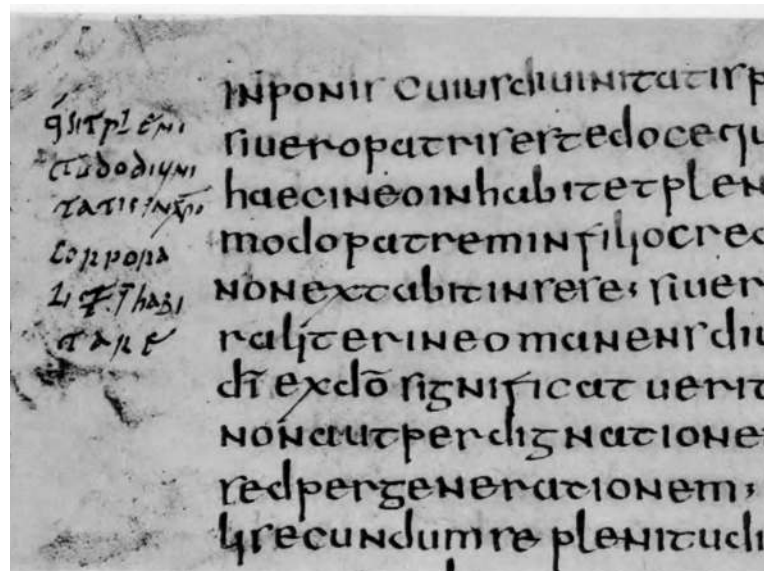 q̄ sit pleni
tudo diuini
tatis in xp̄o
corpora
habi
tare
inponis cuius diuinitatis p
si uero patris est edoce qu
haec in eo inhabitet plen
modo patrem in filio cred
non extabit in se se; si uer
raliter in eo manens diu
dī ex dō significat uerit
non aut per dignatione
sed per generationem;
li secundum se plenitudi